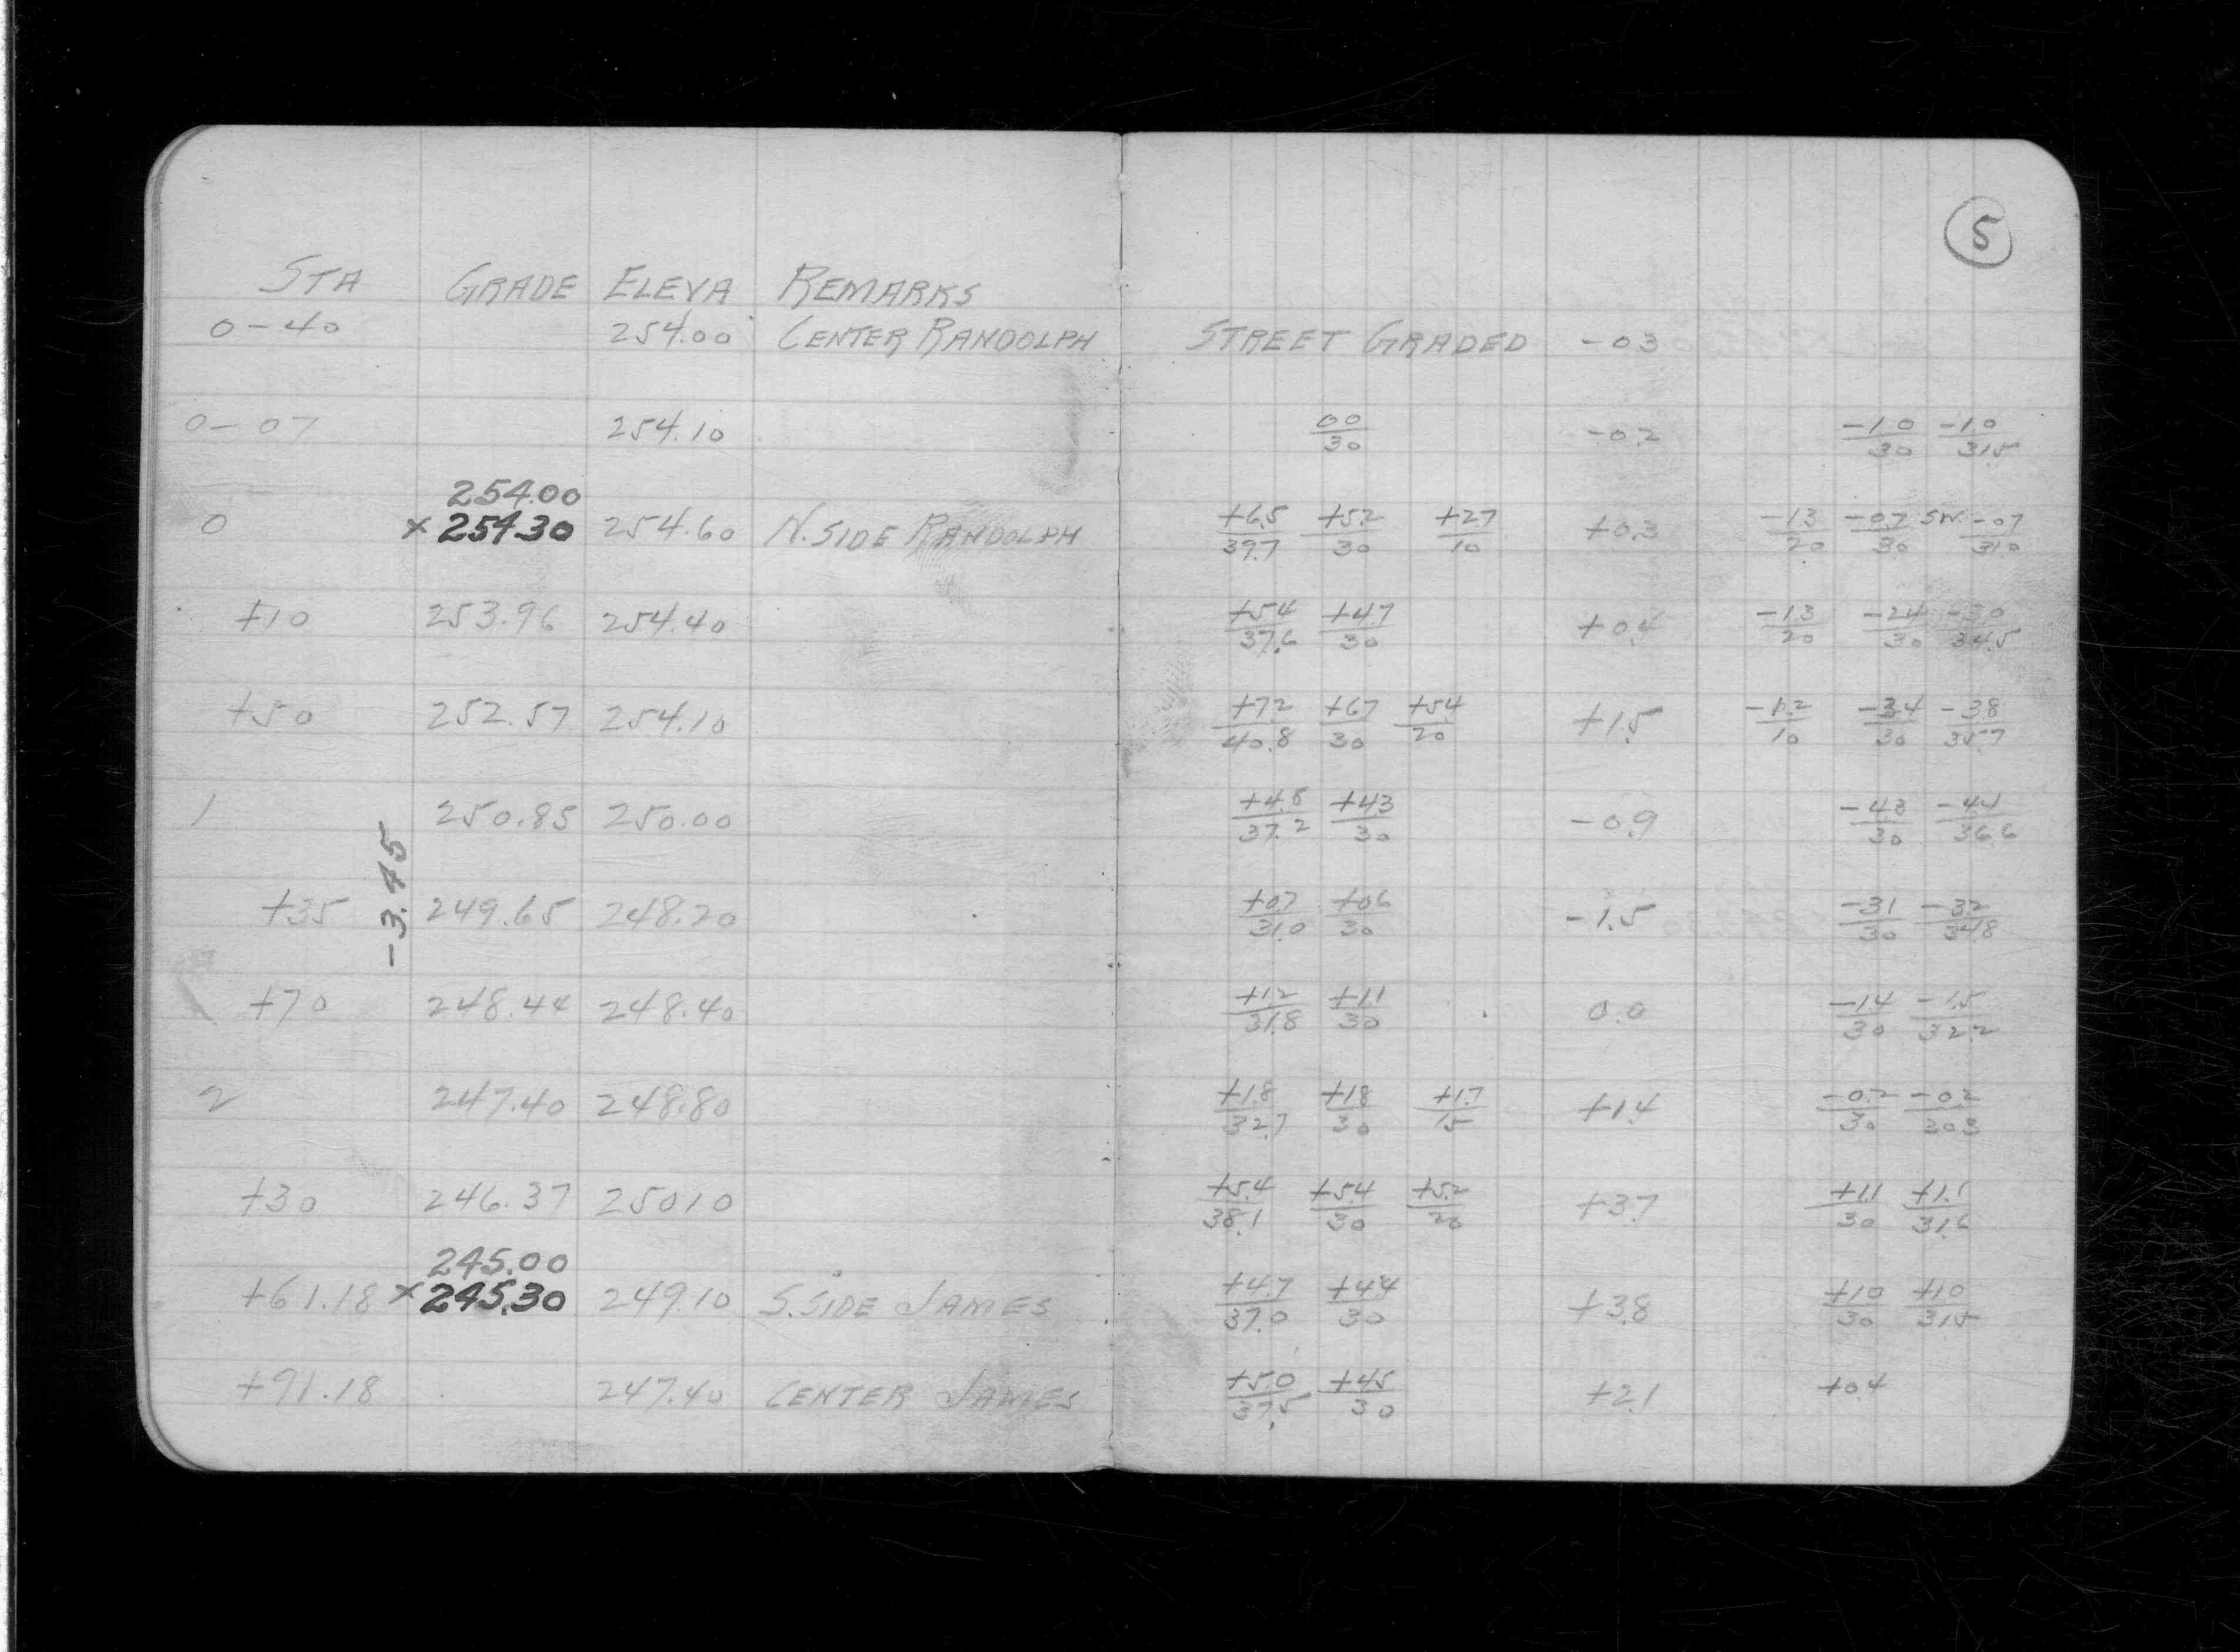 5
STA GRADE ELEVA REMARKS
0-40 254.00 CENTER RANDOLPH STREET GRADED -03
0-07 254.10 00/30 -0.2 -1.0/30 -1.0/31.5
254.00
0 ×254.30 254.60 N. SIDE RANDOLPH +6.5/39.7 +5.2/30 +27/10 +0.3 -13/20 -0.7/30 SW. -07/31.0
+10 253.96 254.40 +54/37.6 +4.7/30 +0.4 -1.3/20 -24/30 -30/34.5
+50 252.57 254.10 +72/40.8 +67/30 +54/20 +1.5 -1.2/10 -34/30 -38/35.7
1 250.85 250.00 +4.8/37.2 +43/30 -0.9 -43/30 -44/36.6
-3.45
+35 249.65 248.20 +07/31.0 +06/30 -1.5 -31/30 -32/34.8
+70 248.44 248.40 +1.2/31.8 +11/30 0.0 -14/30 -1.5/32.2
2 247.40 248.80 +1.8/32.7 +18/30 +1.7/15 +1.4 -0.2/30 -02/30.3
+30 246.37 25010 +5.4/38.1 +54/30 +5.2/20 +3.7 +1.1/30 +1.1/31.6
245.00
+61.18 ×245.30 249.10 S. SIDE JAMES +4.7/37.0 +44/30 +3.8 +10/30 +10/315
+91.18 247.40 CENTER JAMES +5.0/37.5 +45/30 +2.1 +0.4